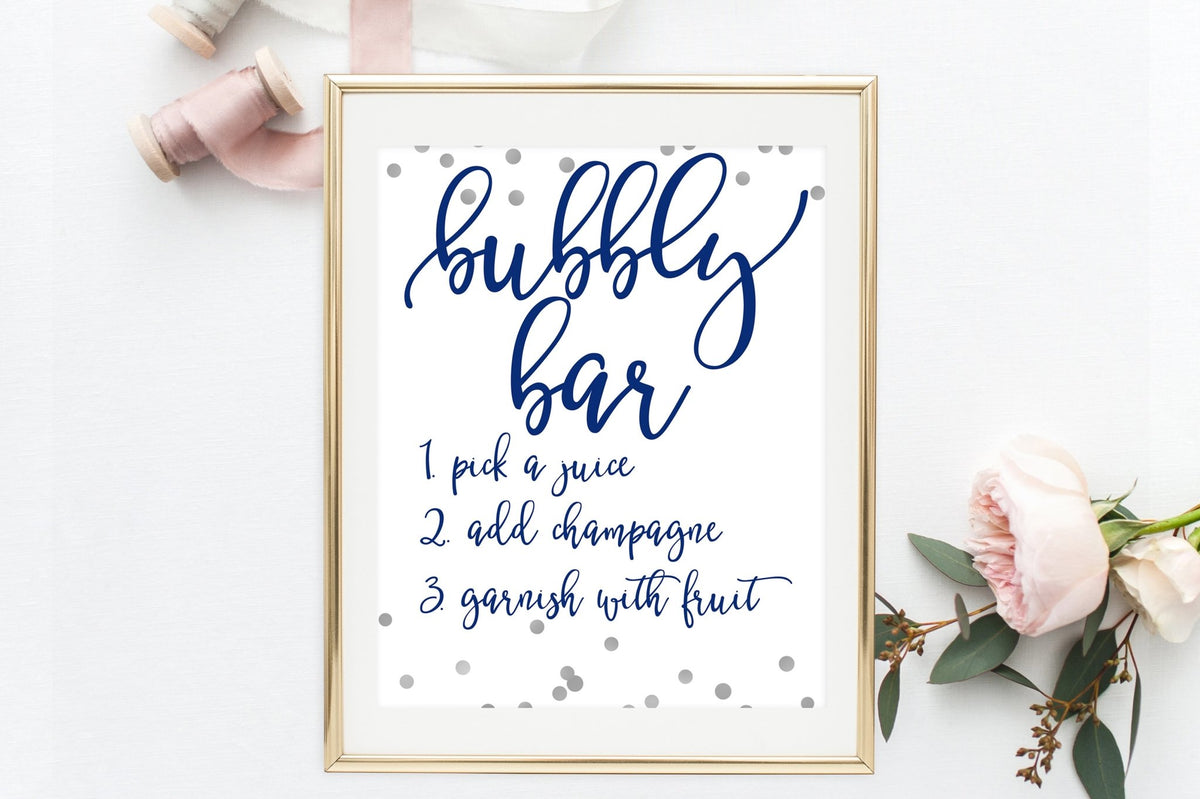 bubbly
bar
1. pick a juice
2. add champagne
3. garnish with fruit